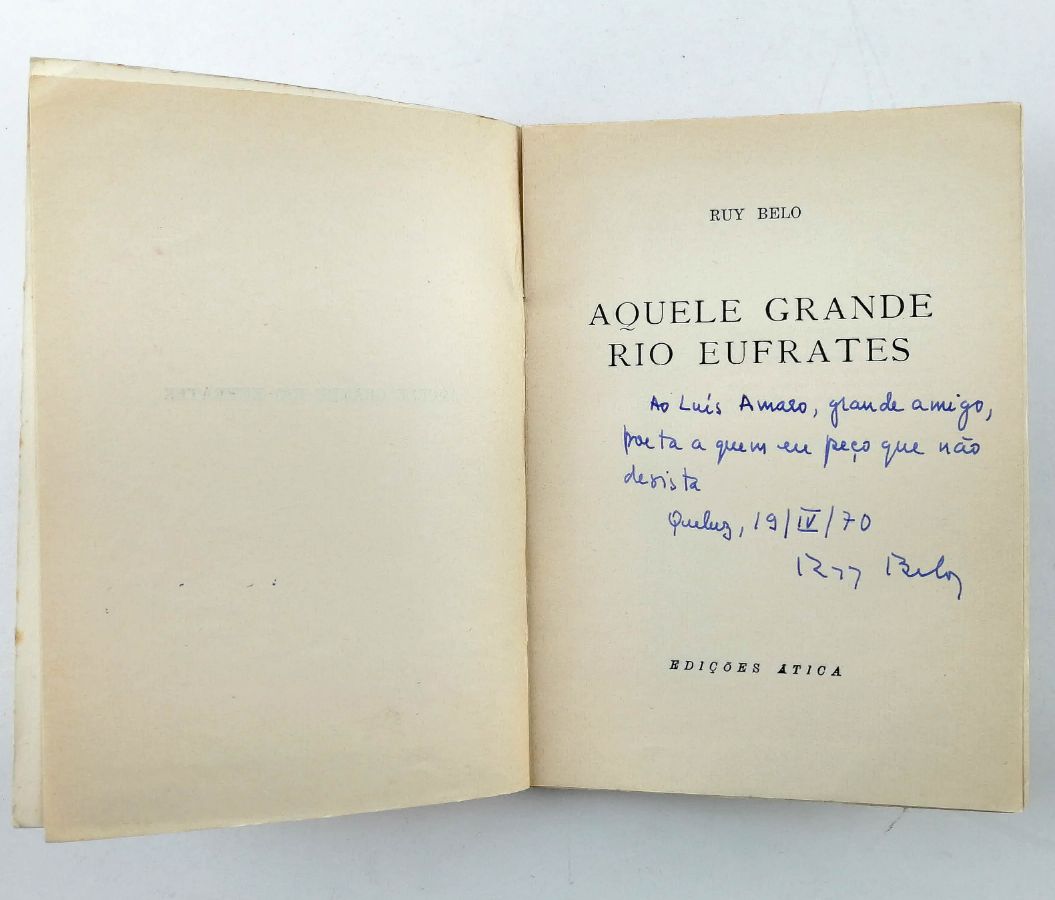 RUY BELO
AQUELE GRANDE
RIO EUFRATES
Ao Luís Amaro, grande amigo,
poeta a quem eu peço que não
desista
Queluz, 19/IV/70
Ruy Belo
EDIÇÕES ÁTICA
AQUELE GRANDE RIO EUFRATES